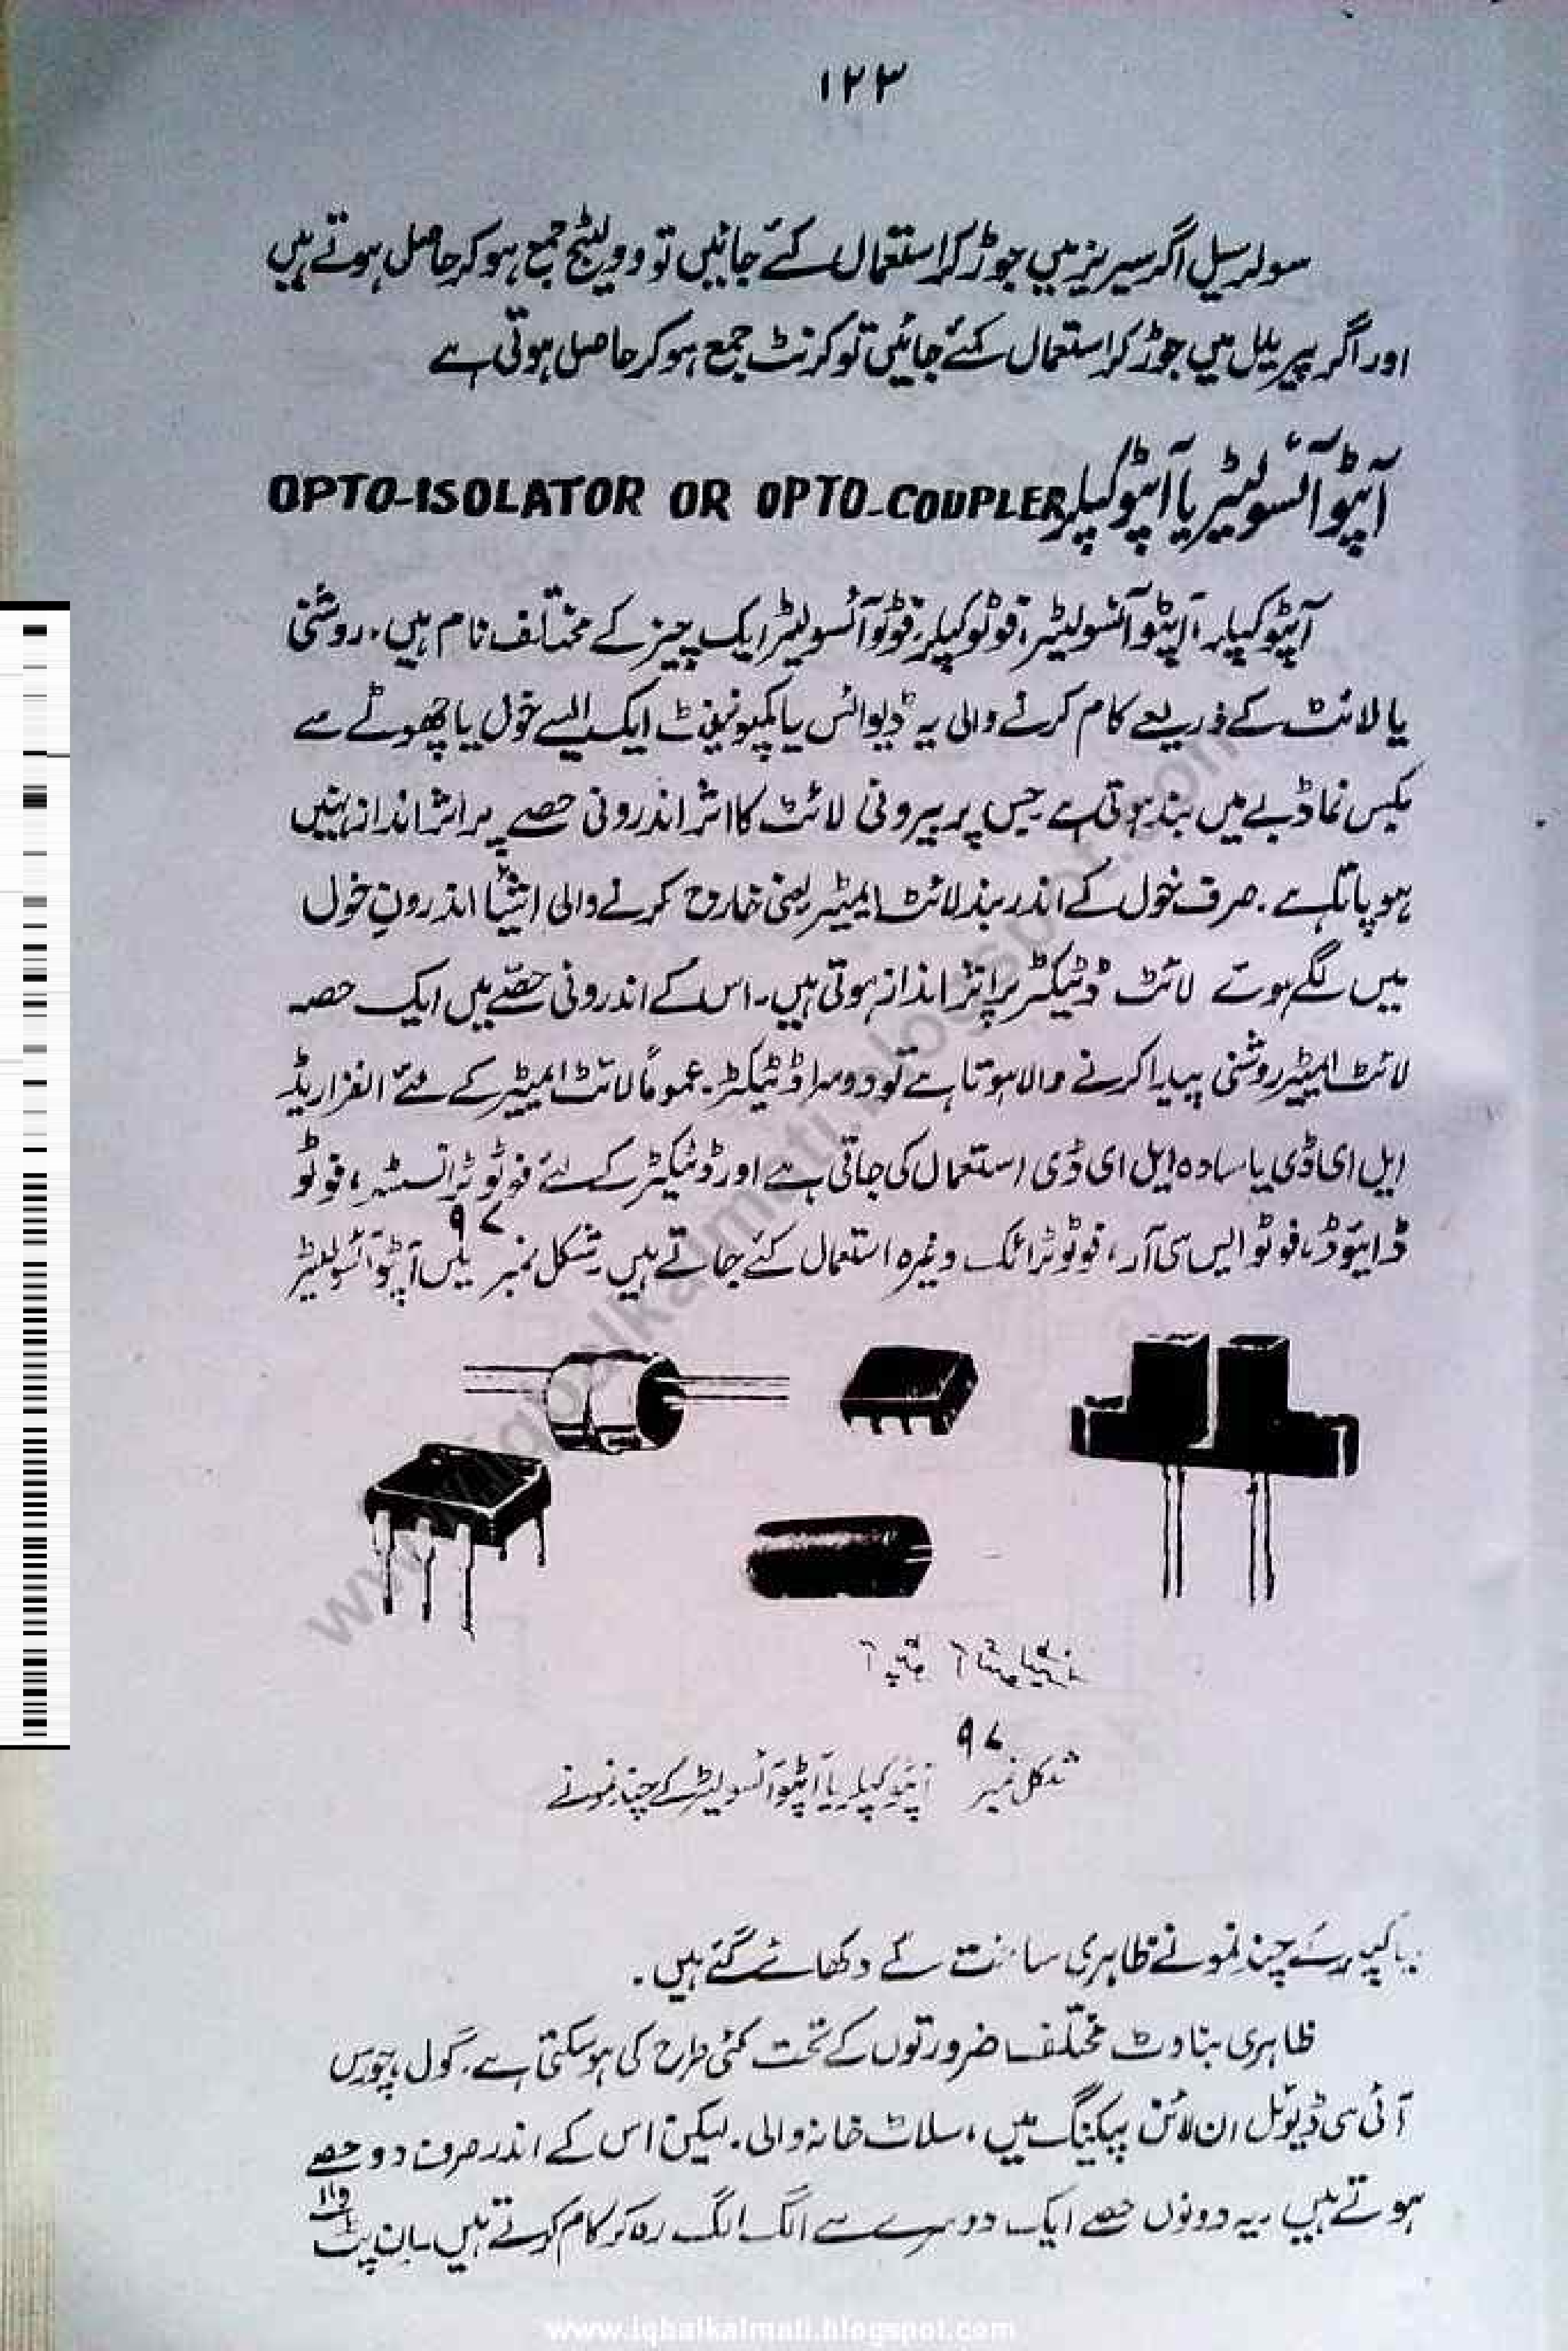 ۱۲۳
سولر سیل اگر سیریز میں جوڑ کر استعمال کئے جائیں تو وولٹیج جمع ہو کر حاصل ہوتے ہیں
اور اگر پیریلل میں جوڑ کر استعمال کئے جائیں تو کرنٹ جمع ہو کر حاصل ہوتی ہے
آپٹو آئسولیٹر یا آپٹو کپلر OPTO-ISOLATOR OR OPTO-COUPLER
آپٹو کپلر، آپٹو آئسولیٹر، فوٹو کپلر، فوٹو آئسولیٹر ایک چیز کے مختلف نام ہیں۔ روشنی
یا لائٹ کے ذریعے کام کرنے والی یہ ڈیوائس یا کمپونینٹ ایک ایسے خول یا چھوٹے سے
بکس نما ڈبے میں بند ہوتی ہے جس پر بیرونی لائٹ کا اثر اندرونی حصے پر اثر انداز نہیں
ہو پاتا ہے۔ صرف خول کے اندر بند لائٹ ایمیٹر یعنی خارج کرنے والی اشیا اندرون خول
میں لگے ہوتے لائٹ ڈٹیکٹر پر اثر انداز ہوتی ہیں۔ اس کے اندرونی حصّے میں ایک حصہ
لائٹ ایمیٹر روشنی پیدا کرنے والا ہوتا ہے تو دوسرا ڈٹیکٹر۔ عموماً لائٹ ایمیٹر کے لئے انفراریڈ
ایل ای ڈی یا سادہ ایل ای ڈی استعمال کی جاتی ہے اور ڈٹیکٹر کے لئے فوٹو ٹرانسسٹر، فوٹو
ڈائیوڈ، فوٹو ایس سی آر، فوٹو ٹرائک وغیرہ استعمال کئے جاتے ہیں شکل نمبر ۹۷ میں آپٹو آئسولیٹر
شکل نمبر ۹۷ آپٹو کپلر یا آپٹو آئسولیٹر کے چند نمونے
یا کپلر کے چند نمونے ظاہری ساخت کے دکھائے گئے ہیں۔
ظاہری بناوٹ مختلف ضرورتوں کے تحت کئی طرح کی ہو سکتی ہے۔ گول، چورس
آئی سی ڈیوئل ان لائن پیکینگ میں، سلاٹ خانہ والی۔ لیکن اس کے اندر صرف دو حصے
ہوتے ہیں یہ دونوں حصے ایک دوسرے سے الگ الگ رہ کر کام کرتے ہیں۔ ان پٹ
www.iqbalkalmati.blogspot.com
www.iqbalkalmati.blogspot.com